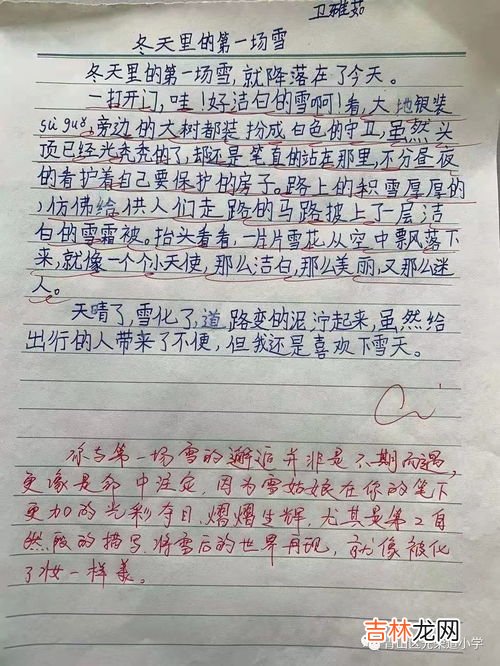 卫雅茹
冬天里的第一场雪
冬天里的第一场雪,就降落在了今天。
一打开门,哇!好洁白的雪啊!看,大地银装
sù guǒ,旁边的大树都装扮成白色的守卫,虽然头
顶已经光秃秃的了,却还是笔直的站在那里,不分昼夜
的看护着自己要保护的房子。路上的积雪厚厚的
,仿佛给供人们走路的马路披上了一层洁
白的雪霜被。抬头看看,一片片雪花从空中飘落下
来,就像一个个小天使,那么洁白,那么美丽,又那么迷
人。
天晴了,雪化了,道路变的泥泞起来,虽然给
出行的人带来了不便,但我还是喜欢下雪天。
你与第一场雪的邂逅并非是不期而遇,
更像是命中注定,因为雪姑娘在你的笔下
更加的光彩夺目,熠熠生辉,尤其是第2自
然段的描写,将雪后的世界再现,就像被化
了妆一样美。
青山区光荣道小学
吉林龙网